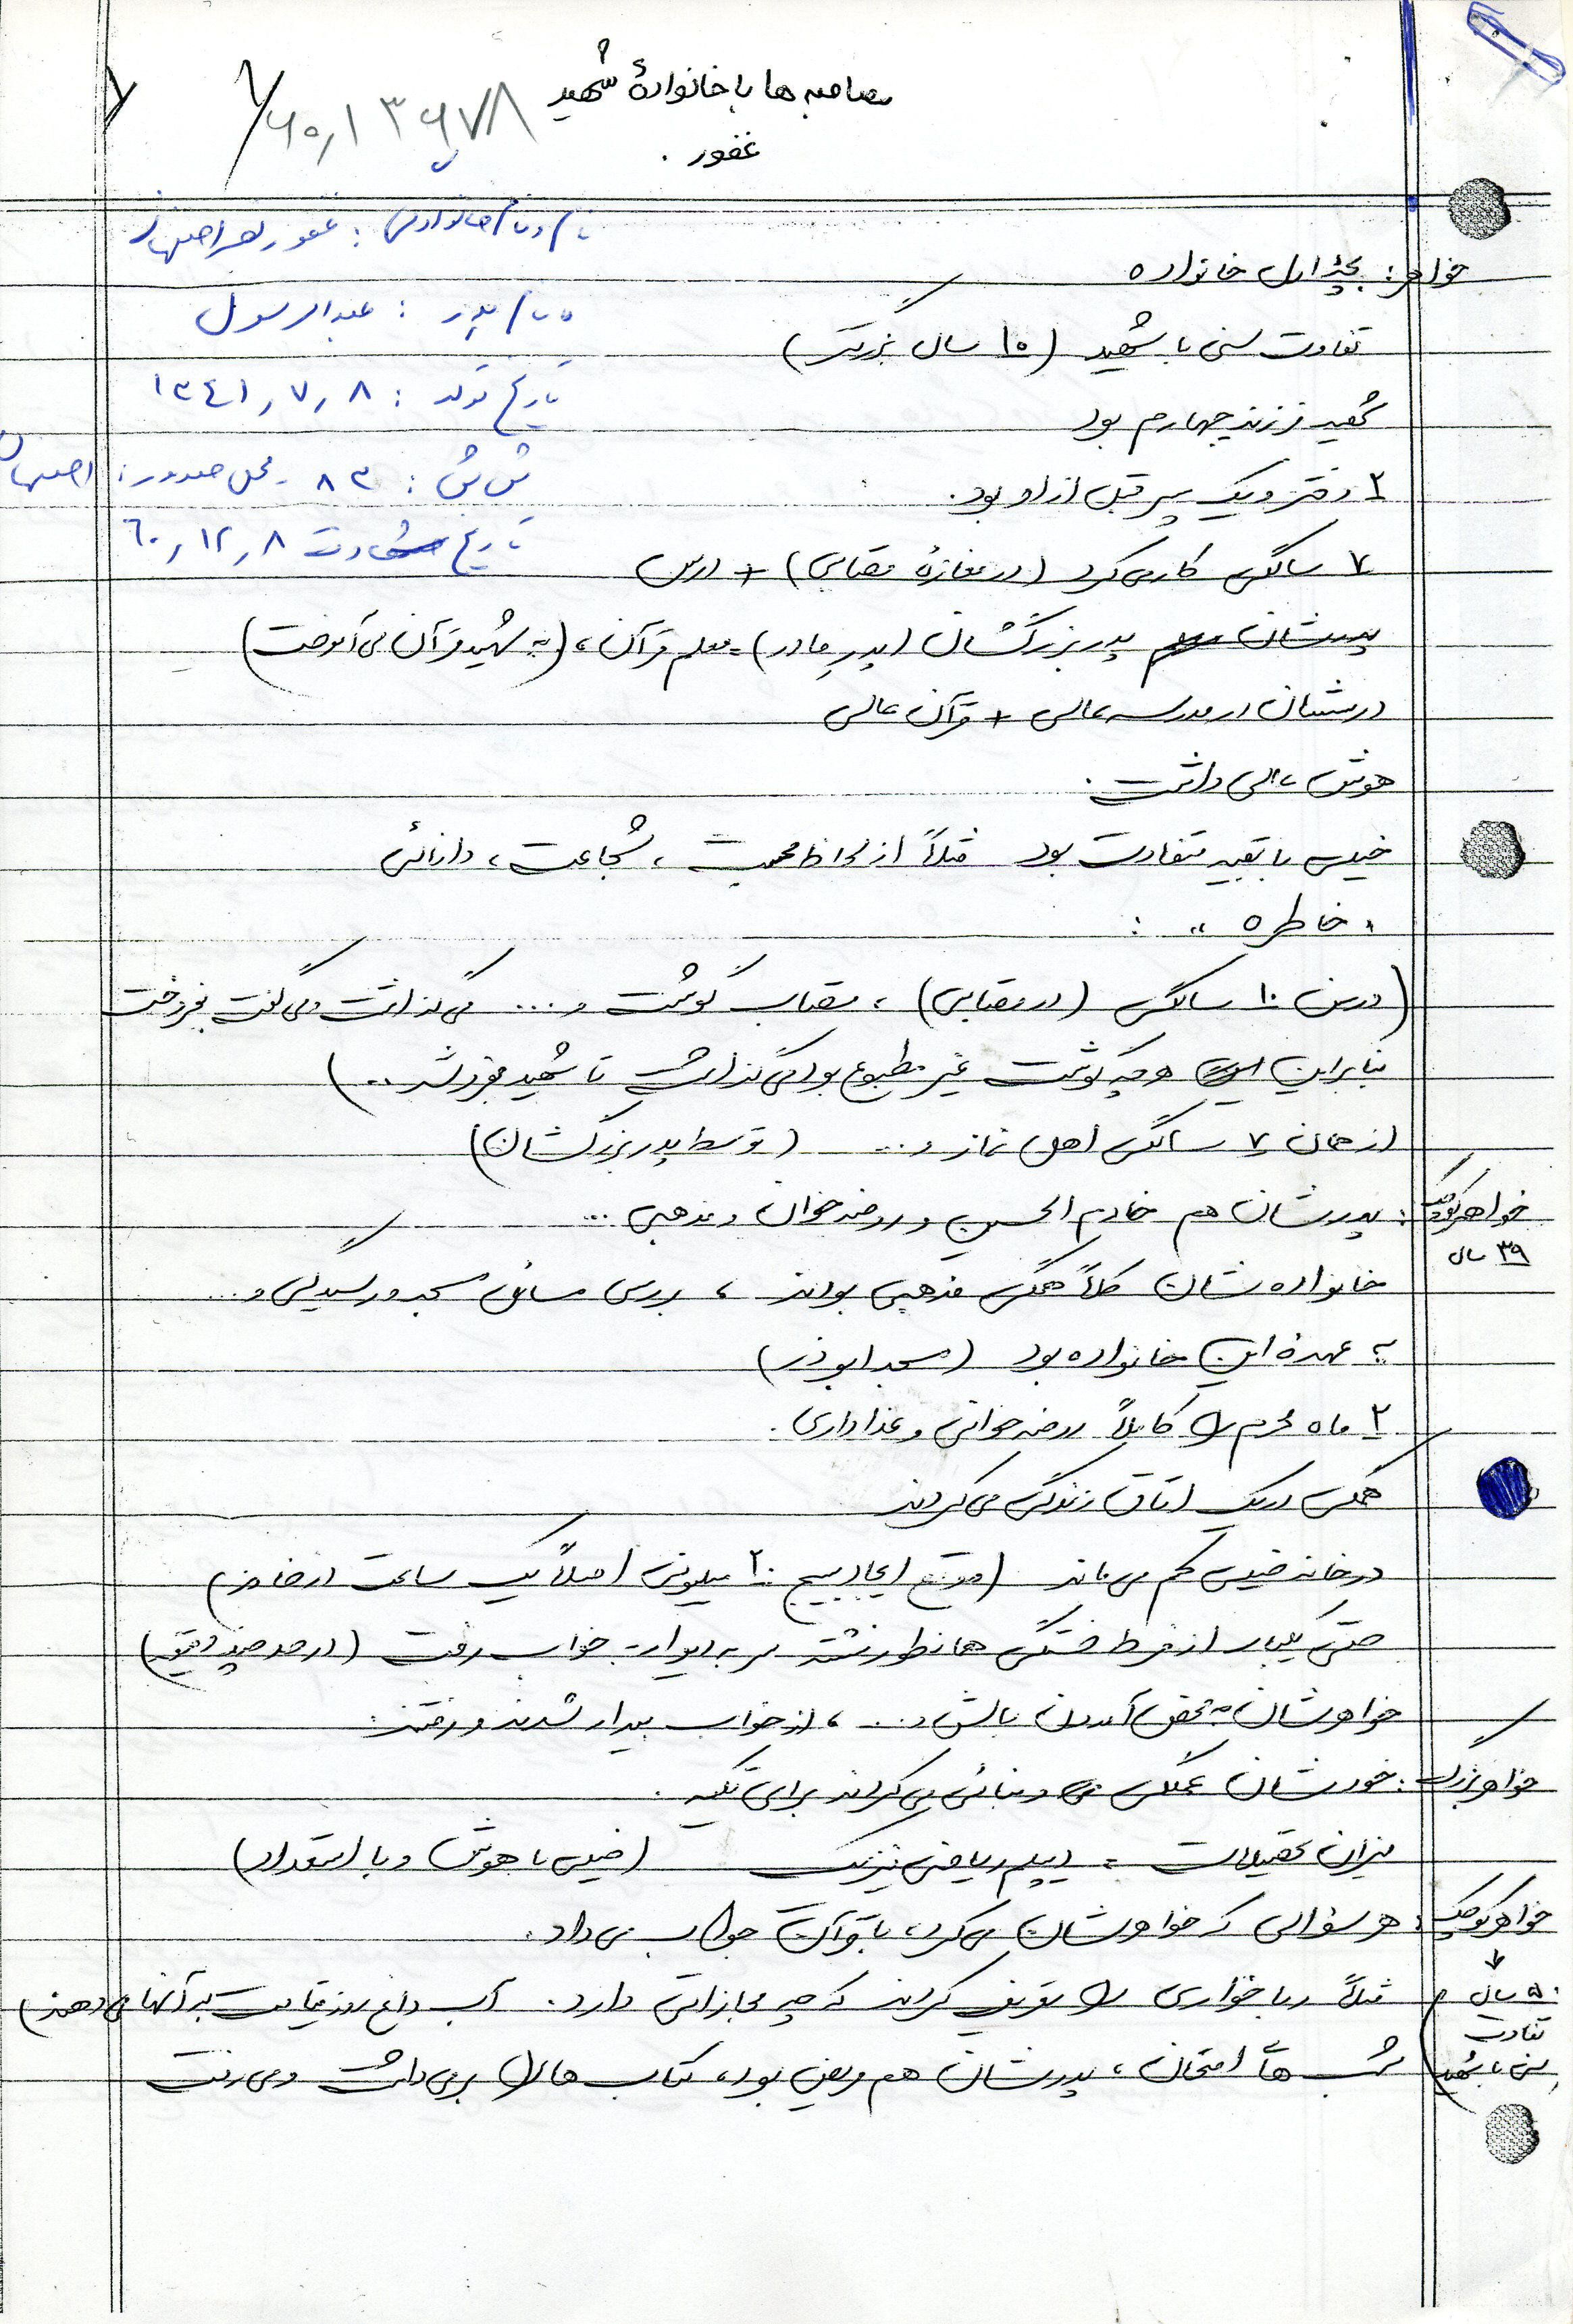 مصاحبه ها با خانوادهٔ شهید
غفور .
۶۰,۱۳۶۷۸
نام و نام خانوادگی : غفور
نام پدر : عبدالرسول
تاریخ تولد : ۱۳۴۱,۷,۸
ش ش : ۸۳ محل صدور : اصفهان
تاریخ شهادت ۶۰,۱۲,۸
خواهر : بچهٔ اول خانواده
تفاوت سنی با شهید (۱۵ سال بزرگتر)
شهید فرزند چهارم بود
۲ دختر و یک پسر قبل از او بود.
۷ سالگی کار می کرد (در مغازهٔ قصابی) + درس
پدربزرگشان (پدرِ مادر) = معلم قرآن ، (به شهید قرآن می آموخت)
درسشان در مدرسه عالی + قرآن عالی
هوش عالی داشت .
خیلی با بقیه متفاوت بود مثلاً از لحاظ محبت ، شجاعت ، دانائی
" خاطره " :
(در سن ۱۰ سالگی (در قصابی) ، قصاب گوشت و ... می گذاشت و می گفت بفروخت
بنابراین هر چه گوشت غیر مطبوع بود می گذاشت تا شهید بفروشد ..)
از همان ۷ سالگی اهل نماز و ... (توسط پدربزرگشان)
خواهر کوچک : پدرشان هم خادم الحسین و روضه خوان و مذهبی ...
۳۹ سال
خانواده شان کلاً همگی مذهبی بودند ، بررسی مسائل مسجد و رسیدگی و ...
به عهدهٔ این خانواده بود (مسجد ابوذر)
۲ ماه محرم را کاملاً روضه خوانی و عذاداری .
همگی در یک اتاق زندگی می کردند
در خانه خیلی کم می ماند (موقع ایجاد بسیج ۲۰ میلیونی اصلاً یک ساعت در خانه)
حتی یکبار از فرط خستگی همانطور نشسته سر به دیوار به خواب رفت (در حد چند دقیقه)
خواهرشان به محض آوردن بالش و ... ، از خواب بیدار شدند و رفتند
خواهر بزرگ : خودشان عملگی و بنائی می کردند برای تکیه .
میزان تحصیلات = دیپلم ریاضی فیزیک (خیلی با هوش و با استعداد)
خواهر کوچک : هر سؤالی که خواهرشان می کرد ، با قرآن جواب می داد .
↓
۵ سال تفاوت سنی با شهید
مثلاً رباخواری را تعریف کردند که چه مجازاتی دارد . آب داغ روز قیامت به آنها می دهند)
شب های امتحان ، پدرشان هم مریض بود ، کتاب ها را بر می داشت و می رفت